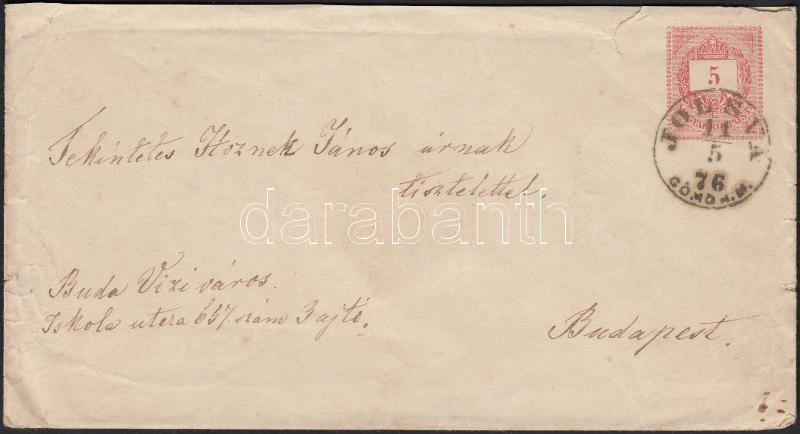 5
JOLSVA
11
5
76
GÖMÖR M.
Tekintetes Hoznek János úrnak
tisztelettel.
darabanth
Buda Viziváros.
Iskola utcza 657. szám 3 ajtó.
Budapest.